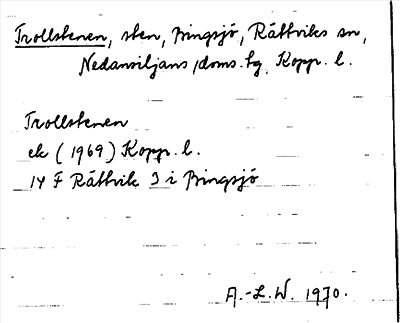 Trollstenen, sten, Bingsjö, Rättviks sn,
Nedansiljans doms. tg, Kopp. l.
Trollstenen
ek (1969) Kopp. l.
14 F Rättvik 3 i Bingsjö
A.-L.W. 1970.